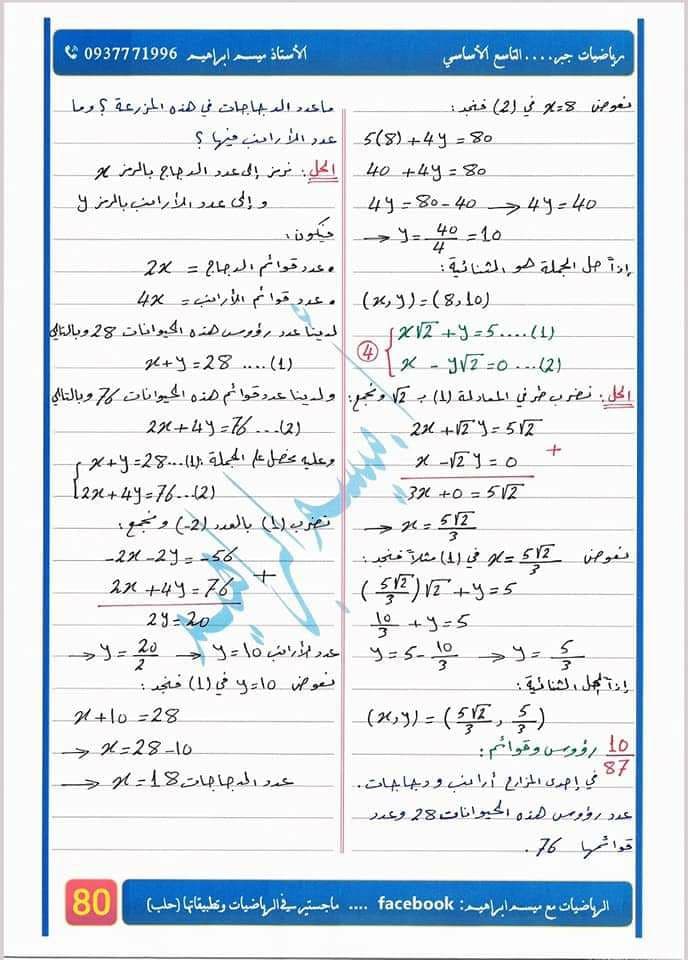 رياضيات جبر.... التاسع الأساسي
الأستاذ ميسم ابراهيم 0937771996
نعوض x=8 في (2) فنجد:
5(8)+4y=80
40+4y=80
4y=80-40 → 4y=40
→ y=40/4=10
إذاً حل الجملة هو الثنائية:
(x,y)=(8,10)
④ { x√2+y=5....(1)
x-y√2=0...(2)
الحل: نضرب طرفي المعادلة (1) بـ √2 ونجمع:
2x+√2y=5√2
x-√2y=0 +
3x+0=5√2
→ x=5√2/3
نعوض x=5√2/3 في (1) مثلاً فنجد:
(5√2/3)√2+y=5
10/3+y=5
y=5-10/3 → y=5/3
إذاً الحل الثنائية:
(x,y)=(5√2/3, 5/3)
10/87 رؤوس وقوائم:
في إحدى المزارع أرانب ودجاجات.
عدد رؤوس هذه الحيوانات 28 وعدد
قوائمها 76.
ماعدد الدجاجات في هذه المزرعة؟ وما
عدد الأرانب فيها؟
الحل: نرمز إلى عدد الدجاج بالرمز x
و إلى عدد الأرانب بالرمز y
فيكون:
•عدد قوائم الدجاج = 2x
•عدد قوائم الأرانب = 4x
لدينا عدد رؤوس هذه الحيوانات 28 وبالتالي
x+y=28 ....(1)
ولدينا عدد قوائم هذه الحيوانات 76 وبالتالي
2x+4y=76 ...(2)
وعليه نحصل على الجملة: { x+y=28...(1)
2x+4y=76...(2)
نضرب (1) بالعدد (-2) ونجمع:
-2x-2y=-56
2x+4y=76 +
2y=20
→ y=20/2 → y=10 عدد الأرانب
نعوض y=10 في (1) فنجد:
x+10=28
→ x=28-10
→ x=18 عدد الدجاجات
الرياضيات مع ميسم ابراهيم: facebook .... ماجستير في الرياضيات وتطبيقاتها (حلب)
80